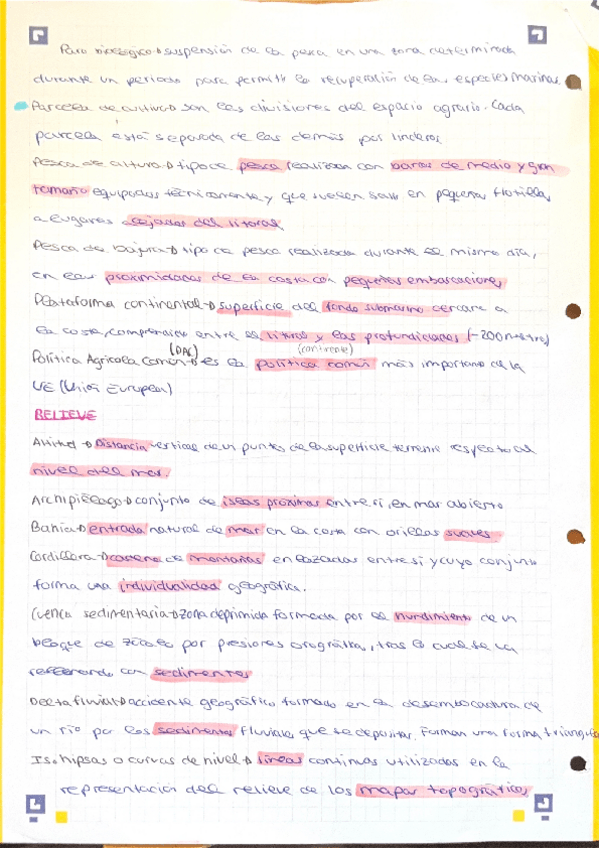 Paro biológico → suspensión de la pesca en una zona determinada
durante un periodo para permitir la recuperación de las especies marinas.
Parcela de cultivo → son las divisiones del espacio agrario. Cada
parcela está separada de las demás por linderos
Pesca de altura → tipo de pesca realizada con barcos de medio y gran
tamaño equipados técnicamente y que suelen salir en pequeñas flotillas
a lugares alejados del litoral
Pesca de bajura → tipo de pesca realizada durante el mismo día,
en las proximidades de la costa con pequeñas embarcaciones
Plataforma continental → superficie del fondo submarino cercano a
la costa, comprendido entre el litoral y las profundidades (-200 metros)
(PAC) (continente)
Política Agrícola Común → es la política común más importante de la
UE (Unión Europea)
RELIEVE
Altitud → Distancia vertical de un punto de la superficie terrestre respecto al
nivel del mar.
Archipiélago → conjunto de islas próximas entre sí, en mar abierto
Bahía → entrada natural de mar en la costa con orillas suaves.
Cordillera → cadena de montañas enlazadas entre sí y cuyo conjunto
forma una individualidad geográfica.
Cuenca sedimentaria → zona deprimida formada por el hundimiento de un
bloque de zócalo por presiones orográfica, tras lo cual se va
rellenando con sedimentos
Delta fluvial → accidente geográfico formado en la desembocadura de
un río por los sedimentos fluviales que se depositan. Forman una forma triangular
Isohipsas o curvas de nivel → líneas continuas utilizadas en la
representación del relieve de los mapas topográficos